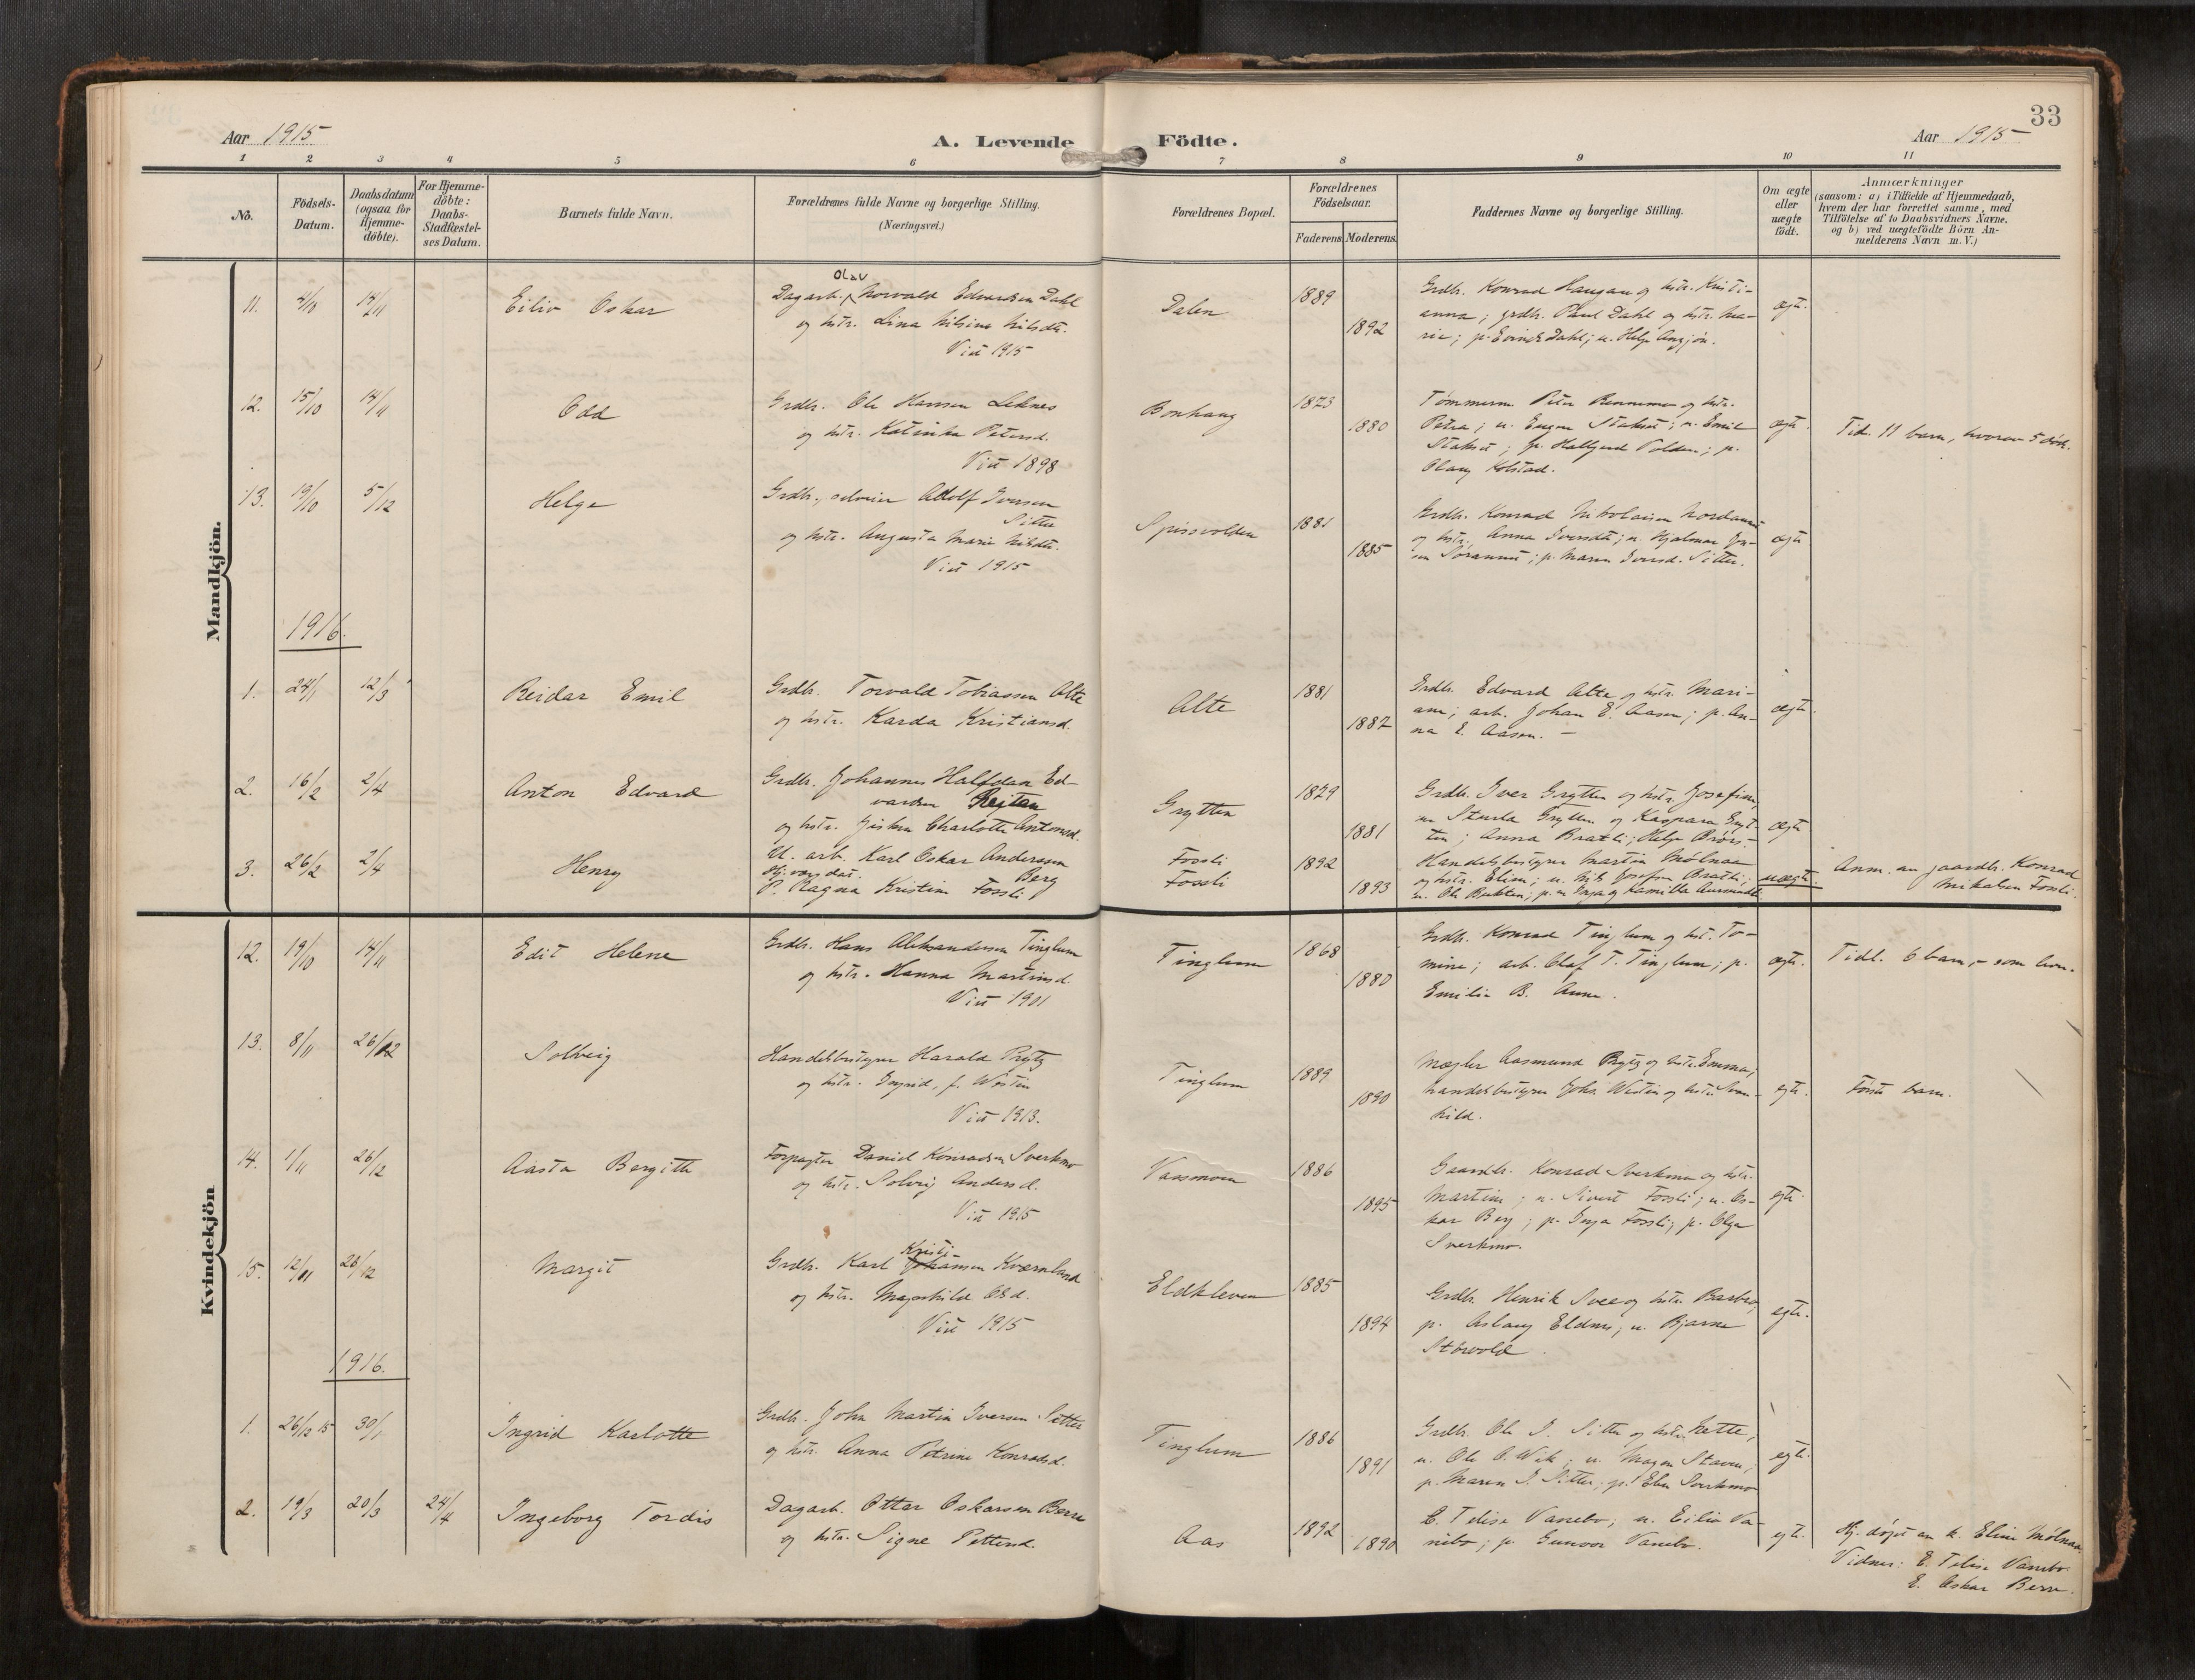 33
Aar 1915
A. Levende Födte.
Aar 1915
1 2 3 4 5 6 7 8 9 10 11
No.
Födsels-
Datum.
Daabsdatum
(ogsaa for
Hjemme-
döbte).
For Hjemme-
döbte:
Daabs-
Stadfestel-
ses Datum.
Barnets fulde Navn.
Forældrenes fulde Navne og borgerlige Stilling.
(Næringsvei.)
Forældrenes Bopæl.
Forældrenes
Födselsaar.
Faderens Moderens.
Faddernes Navne og borgerlige Stilling.
Om ægte
eller
uægte
födt.
Anmærkninger
(saasom: a) i Tilfælde af Hjemmedaab,
hvem der har forrettet samme, med
Tilföielse af to Daabsvidners Navne,
og b) ved uægtefödte Börn An-
melderens Navn m. V.)
Mandkjön.
11. 4/10 14/11 Eiliv Oskar
Olav
Dagarb. Norvald Edvardsen Dahl
og hstr. Lina Nilsine Nilsdtr.
Viet 1915
Dalen 1889
1892
Grdbr. Konrad Haugan og hstr. Kristi-
anna; grdbr. Paul Dahl og hstr. Ma-
rie; p. Eovind Dahl; u. Helge
ægte.
12. 15/10 14/11 Odd
Grdbr. Ole Hansen Leknes
og hstr. Katinka Petersd.
Viet 1898
Bonhaug 1873
1880
Tømmerm. Peter og hstr.
Petra; u. Eugen Stakset; u. Emil
Stakset; p. Hallgerd Volden; p.
Olaug Kolstad.
ægte.
Tid. 11 barn, hvorav 5 død.
13. 19/10 5/12 Helge
Grdbr., selveier Adolf Iversen
Sitter
og hstr. Augusta Marie Nilsdtr.
Viet 1915
Spissvolden 1881
1885
Grdbr. Konrad Nikolaisen
og hstr. Anna Iversdtr; u. Hjalmar Jon-
sen; p. Maren Iversd. Sitter.
ægte
1916.
1. 24/1 12/3 Reidar Emil
Grdbr. Torvald Tobiassen Alte
og hstr. Karda Kristiansd.
Alte 1881
1887
Grdbr. Edvard Alte og hstr. Mari-
ane; arb. Johan E. Aasen; p. An-
na E. Aasen. —
ægte.
2. 16/2 2/4 Anton Edvard
Grdbr. Johannes Halfdan Ed-
vardsen Reitan
og hstr. Charlotte Antonsd.
Grytten 1879
1881
Grdbr. Iver Grytten og hstr. Josefine,
Sturla Grytten og Kaspara Gryt-
ten; Anna Bratli; Helge
ægte
3. 26/2 2/4 Henry
U. arb. Karl Oskar Anderssen
Berg
P. Ragna Kristine Fossli
Fossli
Fossli
1892
1893
Handelsbestyrer Martin Mølnaa
og hstr. Eline; u. Nils Josefsen Bratli;
u. Ole; p. Inga og Kamilla
uægte.
Anm. av gaardbr. Konrad
Mikalsen Fossli.
Kvindekjön
12. 19/10 14/11 Edit Helene
Grdbr. Hans Aleksandersen Tinglum
og hstr. Hanna Martinsd.
Viet 1901
Tinglum 1868
1880
Grdbr. Konrad Tinglum og hst. To-
mine; arb. Olaf T. Tinglum; p.
Emilie B. Aune.
ægte.
Tidl. 6 barn, - som lever.
13. 8/11 26/12 Solveig
Handelsbestyrer Harald Prytz
og hstr. Ingrid, f. Westin
Viet 1913.
Tinglum 1889
1890
Mægler Aasmund Prytz og hstr. Emma;
handelsbestyrer Johs. Westin og hstr. Svan-
hild.
egte.
Første barn.
14. 1/11 26/12 Aasta Bergitte
Forpagter Daniel Konradsen Sverkmo
og hstr. Solveig Andersd.
Viet 1915
Vassmoen 1886
1895
Gaardbr. Konrad Sverkmo og hstr.
Martine; u. Sivert Fossli; u. Os-
kar Berg; p. Inga Fossli; p. Olga
Sverkmo.
egte.
15. 12/11 26/12 Margit
Kristi-
Grdbr. Karl Johansen Kværnland
og hstr. Magnhild Olsd.
Viet 1915
Eldkleven 1885
1894
Grdbr. Henrik Svee og hstr. Barbro;
p. Aslaug Eldnes; u. Bjarne
Storvold.
egte.
1916.
1. 26/12 15 30/1 Ingrid Karlotte
Grdbr. John Martin Iversen Sitter
og hstr. Anna Petrine Konradsd.
Tinglum 1886
1891
Grdbr. Ole I. Sitter og hstr. Nette;
u. Ole O. Wik; u. Magne Staven;
p. Maren I. Sitter; p. Elen Sverkmo
egte.
2. 19/3 20/3 24/4 Ingeborg Tordis
Dagarb. Ottar Oskarsen Berre
og hstr. Signe Pettersd.
Aas 1892
1890
E. Telise Vanebo; u. Eiliv Va-
nebo; p. Gunvor Vanebo.
egte.
Hj. døpt av k. Eline Mølnaa.
Vidner: E. Telise Vanebo.
E. Oskar Berre.